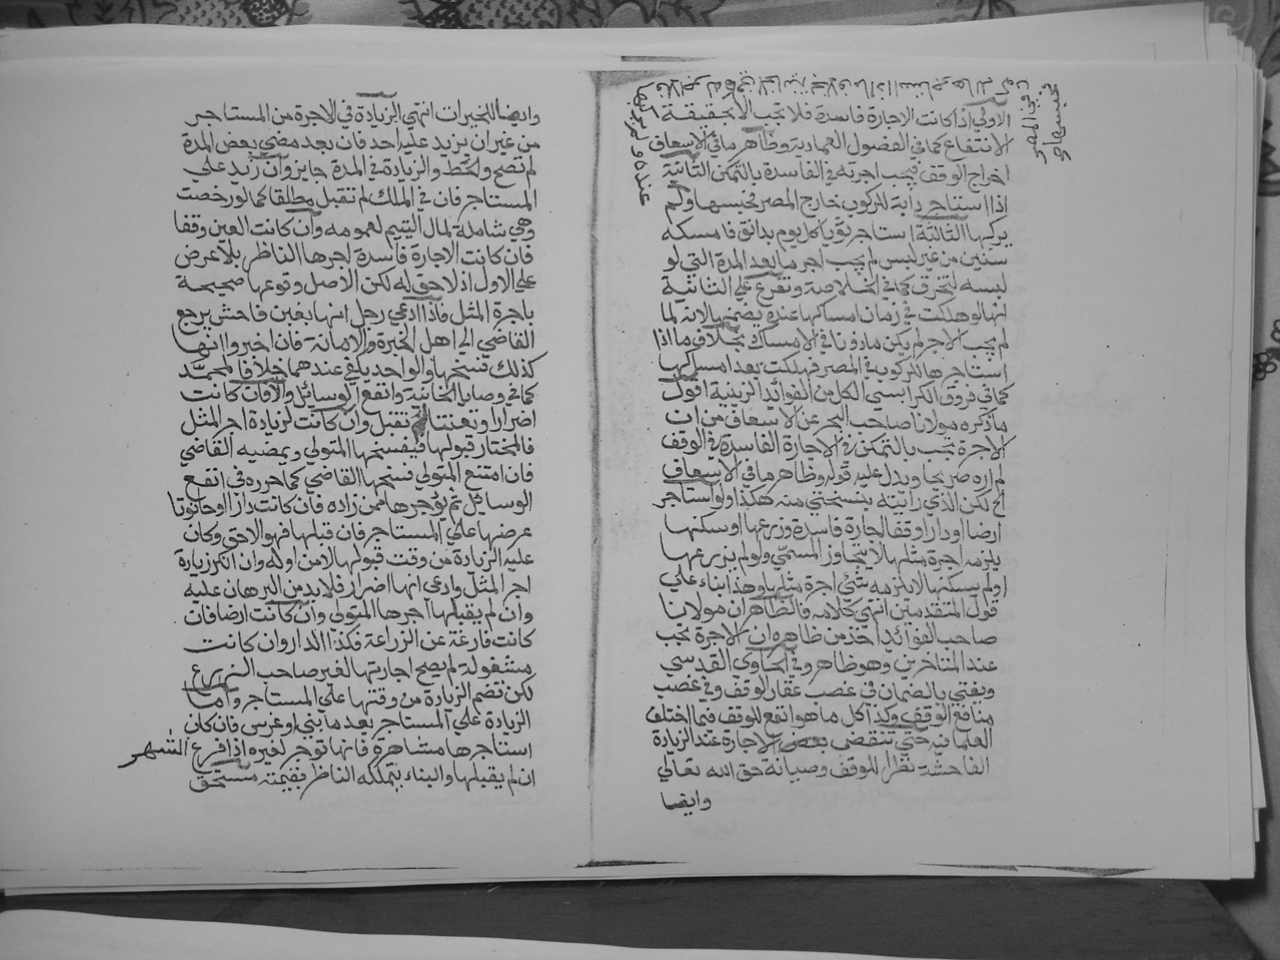 الاولي اذا كانت الاجارة فاسدة فلا تجب الا بحقيقة
الانتفاع كما في الفصول العمادية وظاهر ما في الاسعاف
اخراج الوقف فتجب اجرته في الفاسدة بالتمكن الثانية
اذا استاجر دابة للركوب خارج المصر فحبسها ولم
يركبها الثالثة استاجر ثوبا كل يوم بدانق فامسكه
سنين من غير لبس لم يجب اجر ما بعد المدة التي لو
لبسه لتخرق كما في الخلاصة وتفرع علي الثانية
انها لو هلكت في زمان امساكها عنده يضمنها لانه لما
لم يجب الاجر لم يكن ماذونا في الامساك بخلاف ما اذا
استاجرها للركوب في المصر فهلكت بعد امساكها
كما في فروق الكرابيسي الكل من الفوائد الزينية اقول
ما ذكره مولانا صاحب البحر عن الاسعاف من ان
الاجرة تجب بالتمكن في الاجارة الفاسدة في الوقف
لم اره صريحا ويدل عليه قوله وظاهر ما في الاسعاف
الخ لكن الذي رايته بنسختي منه هكذا ولو استاجر
ارضا او دارا وقفا اجارة فاسدة وزرعها او سكنها
يلزمه اجرة مثلها لا يتجاوز المسمي ولو لم يزرعها
او لم يسكنها لا يلزمه شيء اجرة مثلها وهذا بناء علي
قول المتقدمين انتهي كلامه فالظاهر ان مولانا
صاحب الفوائد اخذ من ظاهره ان الاجرة تجب
عند المتاخرين وهو ظاهر وفي الحاوي القدسي
ويفتي بالضمان في غصب عقار الوقف وفي غصب
منافع الوقف وكذا كل ما هو انفع للوقف فيما اختلف
العلما فيه حتي تنقض بعض الاجارة عند الزيادة
الفاحشة نظرا للوقف وصيانة حق الله تعالي
وايضا
وايضا للخيرات انتهي الزيادة في الاجرة من المستاجر
من غير ان يزيد عليه احد فان بعد مضي بعض المدة
لم تصح والحط والزيادة في المدة جايز وان زيد علي
المستاجر فان في الملك لم تقبل مطلقا كما لو رخصت
وهي شاملة لمال اليتيم لعمومه وان كانت العين وقفا
فان كانت الاجارة فاسدة اجرها الناظر بلا عرض
علي الاول اذ لا حق له لكن الاصل وقوعها صحيحة
باجرة المثل فاذا ادعي رجل انها بغبن فاحش يرجع
القاضي الي اهل الخبرة والامانة فان اخبروا انها
كذلك فسخها والواحد يكفي عندهما خلافا لمحمد
كما في وصايا الخانية وانفع الوسائل والا فان كانت
اضرارا وتعنتا لم تقبل وان كانت لزيادة اجر المثل
فالمختار قبولها فيفسخها المتولي ويمضيه القاضي
فان امتنع المتولي فسخها القاضي كما حرره في انفع
الوسائل ثم يوجرها ممن زاده فان كانت دارا او حانوتا
عرضها علي المستاجر فان قبلها فهو الاحق وكان
عليه الزيادة من وقت قبولها لا من اوله وان انكر زيادة
اجر المثل وادعي انها اضرار فلا بد من البرهان عليه
وان لم يقبلها اجرها المتولي وان كانت ارضا فان
كانت فارغة عن الزراعة فكذا الدار وان كانت
مشغولة لم يصح اجارتها لغير صاحب الزرع
لكن تضم الزيادة من وقتها علي المستاجر واما
الزيادة علي المستاجر بعد ما بني او غرس فان كان
استاجرها مشاهرة فانها توجر لغيره اذا فرغ الشهر
ان لم يقبلها والبناء يتملكه الناظر بقيمته مستحق